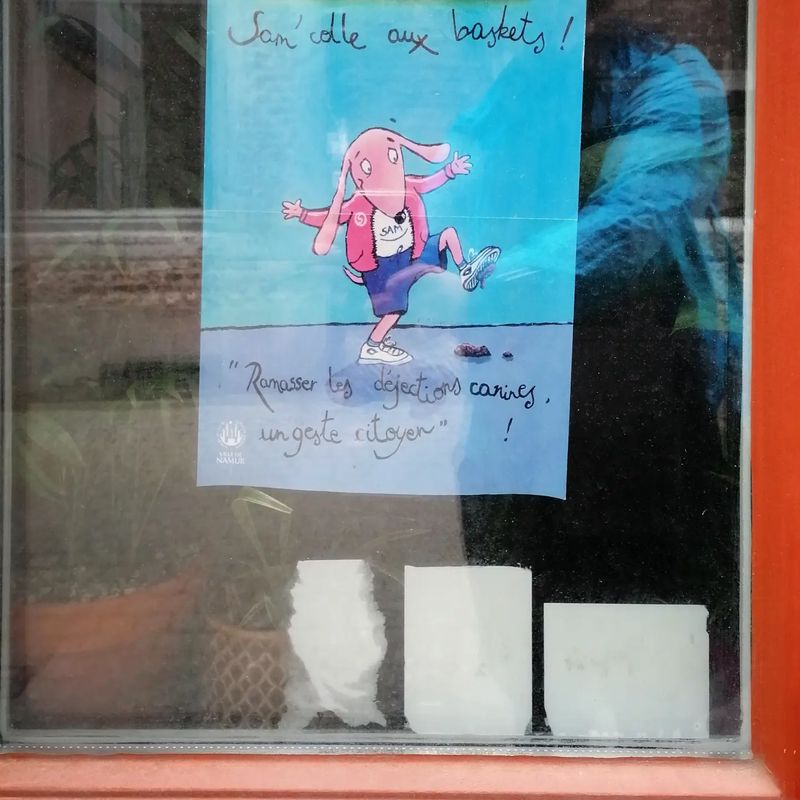 Sam' colle aux baskets !
SAM
"Ramasser les déjections canines,
un geste citoyen" !
VILLE DE
NAMUR